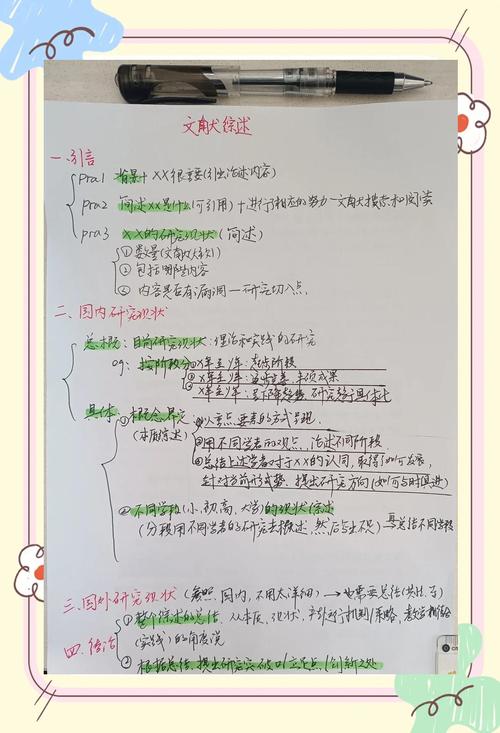 文献综述
一.引言
pra1 背景+XX很重要(引出论述内容)
pra2 简述XX是什么(可引用)+进行相应的努力—文献大搜索和阅读
pra3 XX的研究现状(简述)
①数量(文献次)
②包括哪些内容
③内容是否有漏洞—研究切入点
二.国内研究现状
总概:目前研究现状:理论和实践的研究
eg:按阶段分①X年至X年:起点阶段
②X年至X年:主项成果
③X年至X年:呈下降趋势,研究
具体①概念界定①以要素的方式呈现.
(本质综述)②用不同学者的观点,论述不同阶段
③总结上述学者对于XX的认同,取得
针对当前形式势,提出研究方向(如何与时俱进)
②不同学段(小,初高,大学)的现状综述
(分段用不同学者的研究去概述,然后总不同学段
三.国外研究现状(参照国内,不用太详细)→也需要总结
①整个综述的总结 从本质、现状、机制/策略、
四.结论 (实践)的角度说
②根据总结,提出研究立足点/创新之处